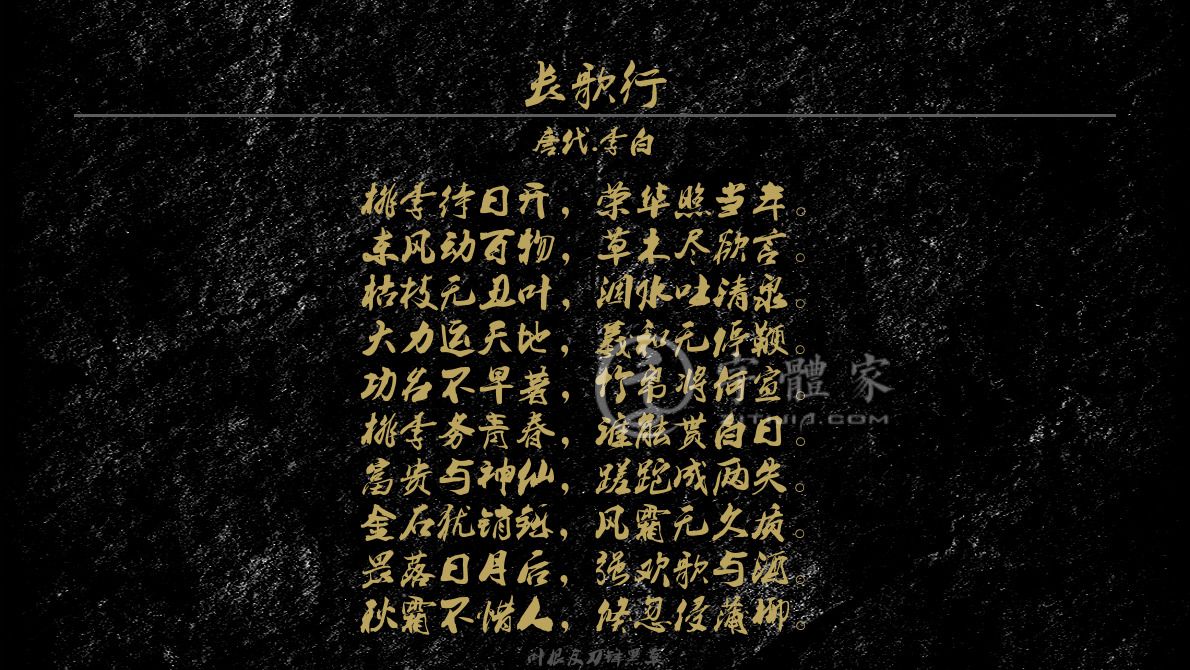 长歌行
唐代.李白
桃李待日开，荣华照当年。
东风动百物，草木尽欲言。
枯枝无丑叶，涸水吐清泉。
大力运天地，羲和无停鞭。
功名不早著，竹帛将何宣。
桃李务青春，谁能贯白日。
富贵与神仙，蹉跎成两失。
金石犹销铄，风霜无久质。
畏落日月后，强欢歌与酒。
秋霜不惜人，倏忽侵蒲柳。
字體家
ZITIJIA.COM
叶根友刀锋黑草